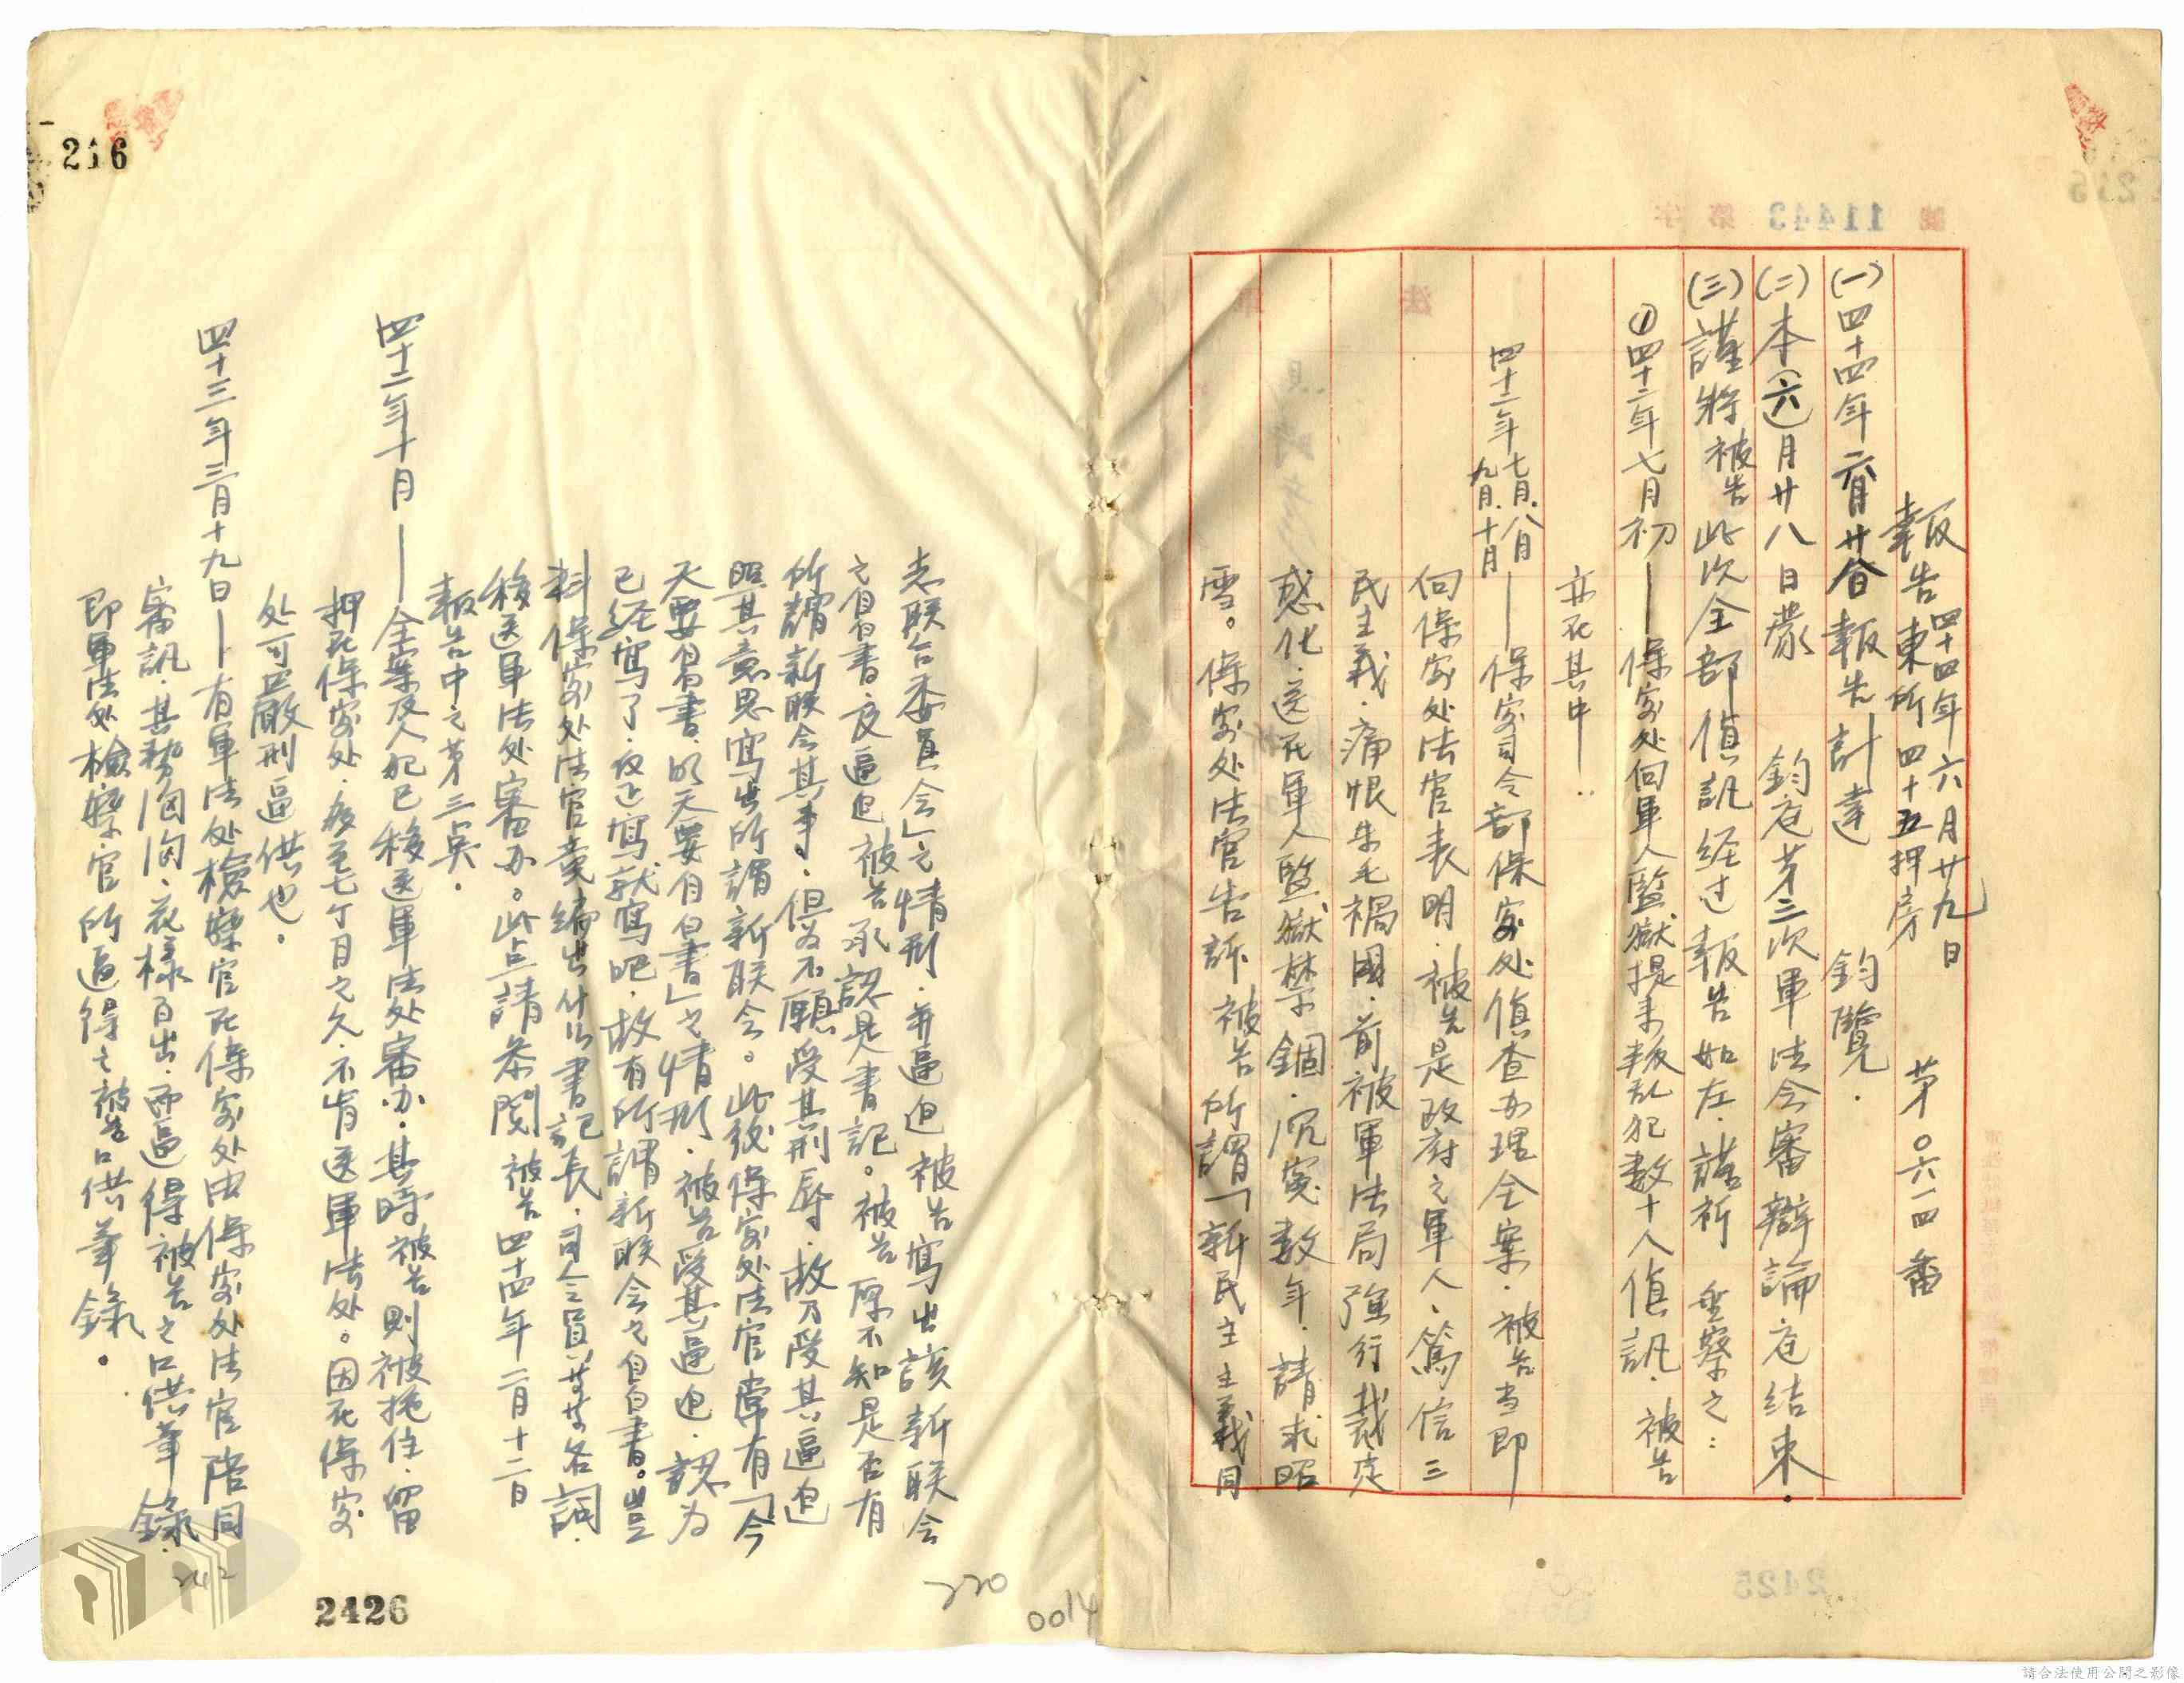 報告 四十四年六月廿九日
東所四十五押房 第〇六一四番
(一)四十四年六月廿八日報告計達 鈞覽.
(二)本(六)月廿八日蒙 鈞庭第三次軍法会審辯論庭結束.
(三)謹將被告此次全部偵訊経过報告如左.謹祈 垂察之:
①四十二年七月初——保安处向軍人監獄提来叛乱犯数十人偵訊.被告
亦在其中——..
四十二年七月.八月九月.十月——保安司令部保安处偵查办理全案.被告当即
向保安处法官表明.被告是政府之軍人、篤信三
民主義.痛恨朱毛禍國.前被軍法局強行裁定
感化.送在軍人監獄禁錮.沉寃数年.請求昭
雪。保安处法官告訴被告所謂「新民主主義同
志联合委員会」之情形.并逼迫被告寫出該新联会
之自白書.及逼迫被告承認是書記。被告原不知是否有
所謂新联会其事.但为不願受其刑辱.故乃受其逼迫
照其意思寫出所謂新联会。此致保安处法官常有「今
天要自白書.明天要自白書」之情形.被告受其逼迫.認为
已経寫了.反正寫就寫吧.故有所謂新联会之自白書。豈
料保安处法官竟編出什么書記長.司令員等等名詞.
移送軍法处審办。此点請参閱被告四十四年二月十二日
報告中之第三点.
四十二年十月——全案及人犯已移送軍法处審办.其時被告則被拖住.留
押在保安处.後至七个月之久.不肯送軍法处。因在保安
处可以嚴刑逼供也.
四十三年三月十九日——有軍法处檢察官在保安处由保安处法官陪同
審訊.其勢洶洶、花樣百出.而逼得被告之口供筆錄.
即軍法处檢察官所逼得之被告口供筆錄.
216
2426
242
220
0014
請合法使用公開之影像